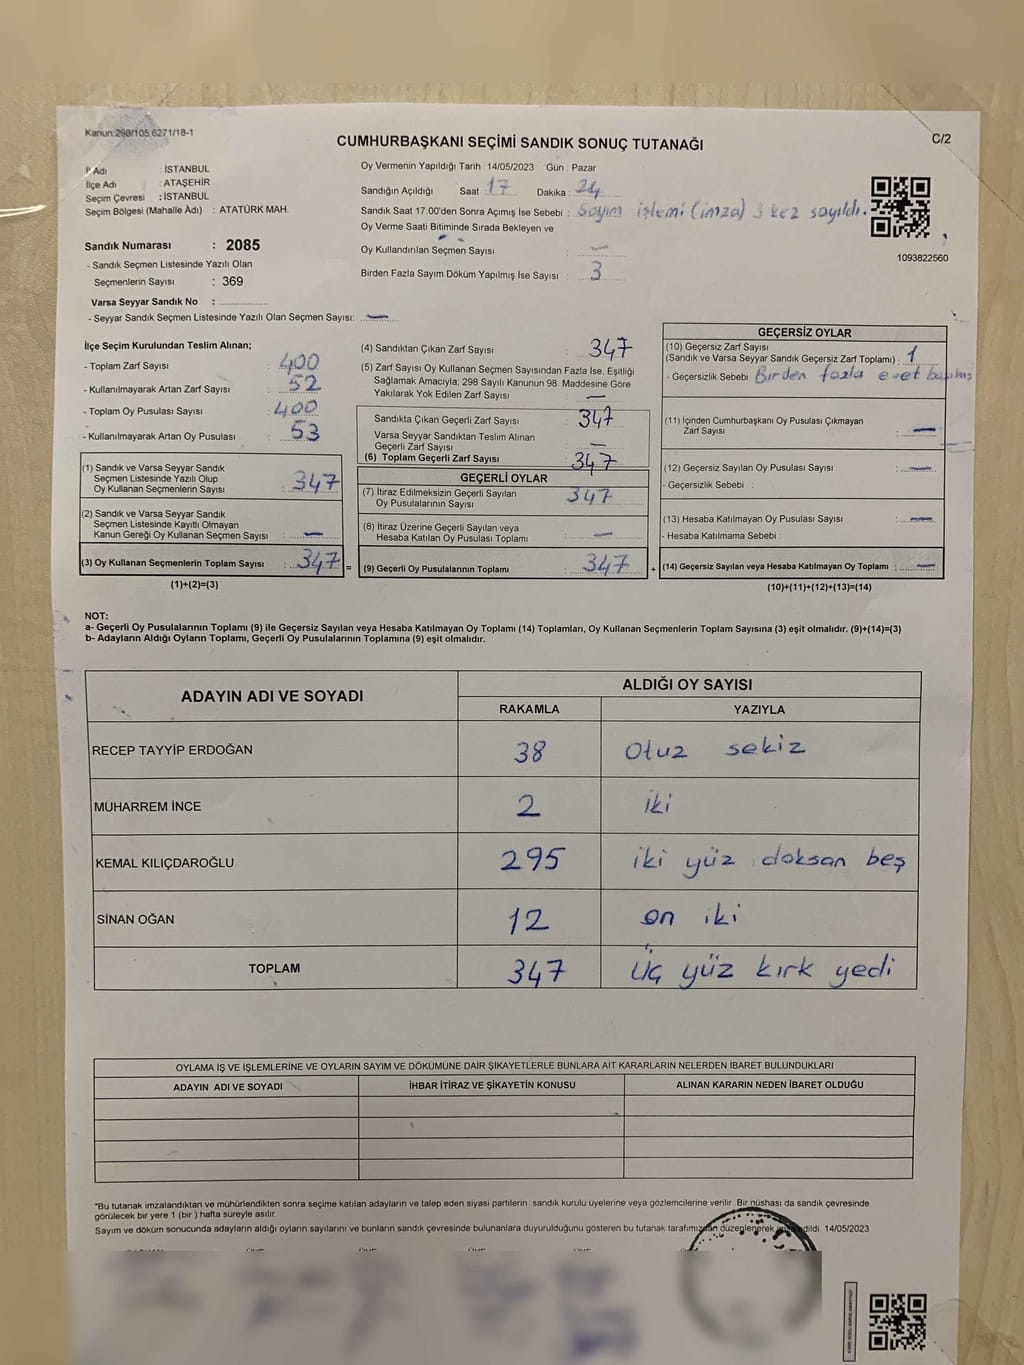 Kanun:298/105,6271/18-1
C/2
CUMHURBAŞKANI SEÇİMİ SANDIK SONUÇ TUTANAĞI
İl Adı : İSTANBUL
İlçe Adı : ATAŞEHİR
Seçim Çevresi : İSTANBUL
Seçim Bölgesi (Mahalle Adı) : ATATÜRK MAH.
Sandık Numarası : 2085
- Sandık Seçmen Listesinde Yazılı Olan
Seçmenlerin Sayısı : 369
Varsa Seyyar Sandık No :
- Seyyar Sandık Seçmen Listesinde Yazılı Olan Seçmen Sayısı: —
Oy Vermenin Yapıldığı Tarih : 14/05/2023 Gün : Pazar
Sandığın Açıldığı Saat : 17 Dakika : 24
Sandık Saat 17:00'den Sonra Açımış İse Sebebi : Sayım işlemi (imza) 3 kez sayıldı.
Oy Verme Saati Bitiminde Sırada Bekleyen ve
Oy Kullandırılan Seçmen Sayısı : —
Birden Fazla Sayım Döküm Yapılmış İse Sayısı : 3
1093822560
İlçe Seçim Kurulundan Teslim Alınan;
- Toplam Zarf Sayısı : 400
- Kullanılmayarak Artan Zarf Sayısı : 52
- Toplam Oy Pusulası Sayısı : 400
- Kullanılmayarak Artan Oy Pusulası : 53
(1) Sandık ve Varsa Seyyar Sandık
Seçmen Listesinde Yazılı Olup
Oy Kullanan Seçmenlerin Sayısı : 347
(2) Sandık ve Varsa Seyyar Sandık
Seçmen Listesinde Kayıtlı Olmayan
Kanun Gereği Oy Kullanan Seçmen Sayısı : —
(3) Oy Kullanan Seçmenlerin Toplam Sayısı : 347 =
(1)+(2)=(3)
(4) Sandıktan Çıkan Zarf Sayısı : 347
(5) Zarf Sayısı Oy Kullanan Seçmen Sayısından Fazla İse, Eşitliği
Sağlamak Amacıyla; 298 Sayılı Kanunun 98. Maddesine Göre
Yakılarak Yok Edilen Zarf Sayısı : —
Sandıkta Çıkan Geçerli Zarf Sayısı : 347
Varsa Seyyar Sandıktan Teslim Alınan
Geçerli Zarf Sayısı : —
(6) Toplam Geçerli Zarf Sayısı : 347
GEÇERLİ OYLAR
(7) İtiraz Edilmeksizin Geçerli Sayılan
Oy Pusulalarının Sayısı : 347
(8) İtiraz Üzerine Geçerli Sayılan veya
Hesaba Katılan Oy Pusulası Toplamı : —
(9) Geçerli Oy Pusulalarının Toplamı : 347 +
GEÇERSİZ OYLAR
(10) Geçersiz Zarf Sayısı
(Sandık ve Varsa Seyyar Sandık Geçersiz Zarf Toplamı) : 1
- Geçersizlik Sebebi : Birden fazla evet
(11) İçinden Cumhurbaşkanı Oy Pusulası Çıkmayan
Zarf Sayısı : —
(12) Geçersiz Sayılan Oy Pusulası Sayısı : —
- Geçersizlik Sebebi :
(13) Hesaba Katılmayan Oy Pusulası Sayısı : —
- Hesaba Katılmama Sebebi :
(14) Geçersiz Sayılan veya Hesaba Katılmayan Oy Toplamı : —
(10)+(11)+(12)+(13)=(14)
NOT:
a- Geçerli Oy Pusulalarının Toplamı (9) ile Geçersiz Sayılan ve Hesaba Katılmayan Oy Toplamı (14) Toplamları, Oy Kullanan Seçmenlerin Toplam Sayısına (3) eşit olmalıdır. (9)+(14)=(3)
b- Adayların Aldığı Oyların Toplamı, Geçerli Oy Pusulalarının Toplamına (9) eşit olmalıdır.
ADAYIN ADI VE SOYADI
ALDIĞI OY SAYISI
RAKAMLA YAZIYLA
RECEP TAYYİP ERDOĞAN 38 Otuz sekiz
MUHARREM İNCE 2 iki
KEMAL KILIÇDAROĞLU 295 iki yüz doksan beş
SİNAN OĞAN 12 on iki
TOPLAM 347 üç yüz kırk yedi
OYLAMA İŞ VE İŞLEMLERİNE VE OYLARIN SAYIM VE DÖKÜMÜNE DAİR ŞİKAYETLERLE BUNLARA AİT KARARLARIN NELERDEN İBARET BULUNDUKLARI
ADAYIN ADI VE SOYADI İHBAR İTİRAZ VE ŞİKAYETİN KONUSU ALINAN KARARIN NEDEN İBARET OLDUĞU
*Bu tutanak imzalandıktan ve mühürlendikten sonra seçime katılan adayların ve talep eden siyasi partilerin sandık kurulu üyelerine veya gözlemcilerine verilir. Bir nüshası da sandık çevresinde
görülecek bir yere 1 (bir ) hafta süreyle asılır.
Sayım ve döküm sonucunda adayların aldığı oyların sayılarını ve bunların sandık çevresinde bulunanlara duyurulduğunu gösteren bu tutanak tarafımızdan düzenlenerek 14/05/2023